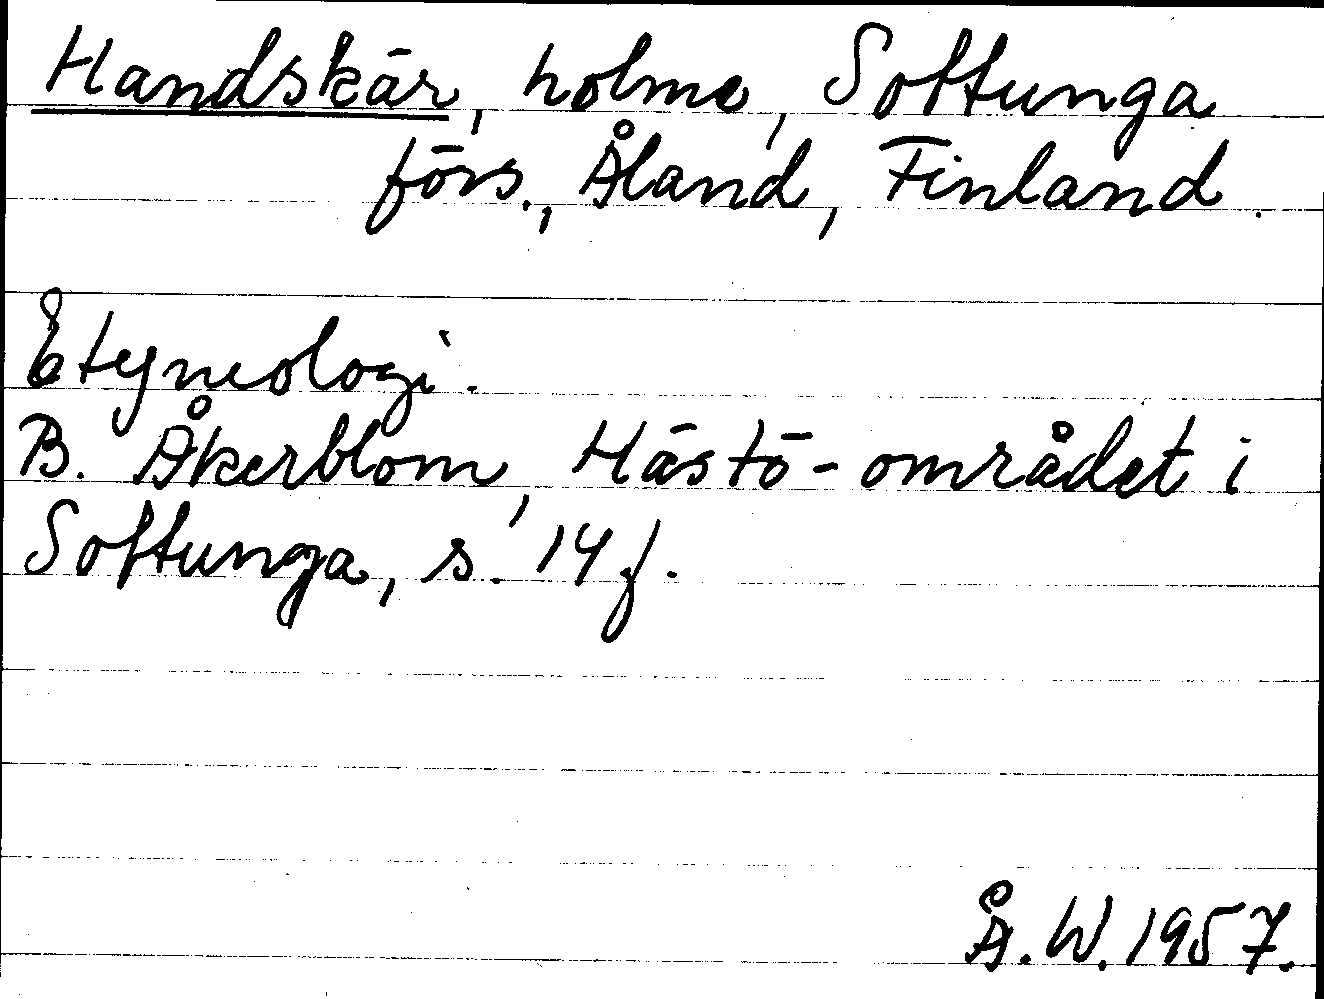 Handskär, holme, Sottunga
förs., Åland, Finland.
Etymologi.
B. Åkerblom, Hästö-området i
Sottunga, s. 14 f.
Å.W. 1957.